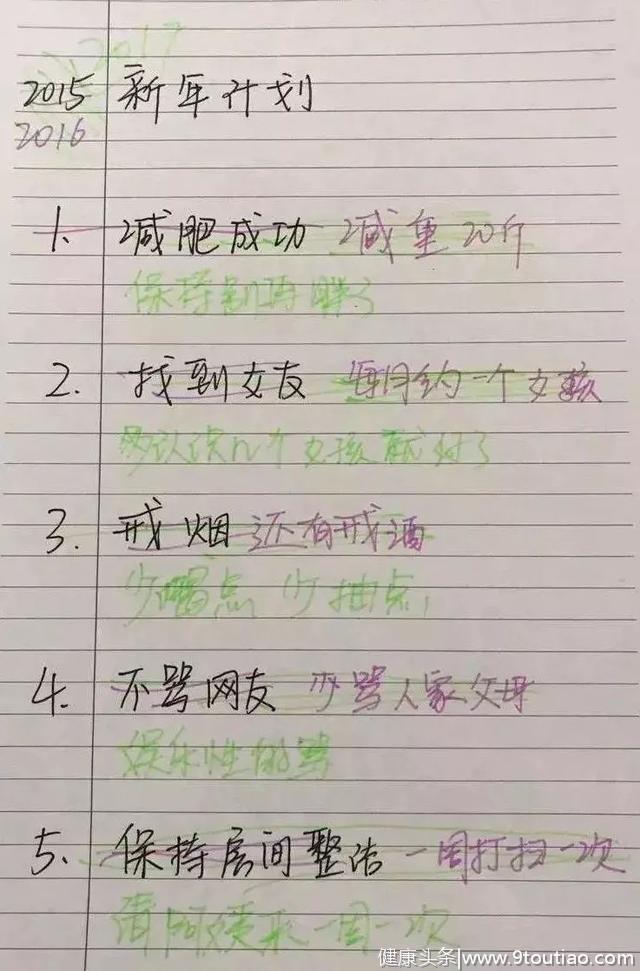 2017
2015 新年计划
2016
1. 减肥成功 减重20斤
保持别再胖了
2. 找到女友 每月约一个女孩
多认识几个女孩就好了
3. 戒烟 还有戒酒
少喝点 少抽点
4. 不骂网友 少骂人家父母
娱乐性的骂
5. 保持房间整洁 一周打扫一次
请阿姨来一周一次
健康头条|www.9toutiao.com